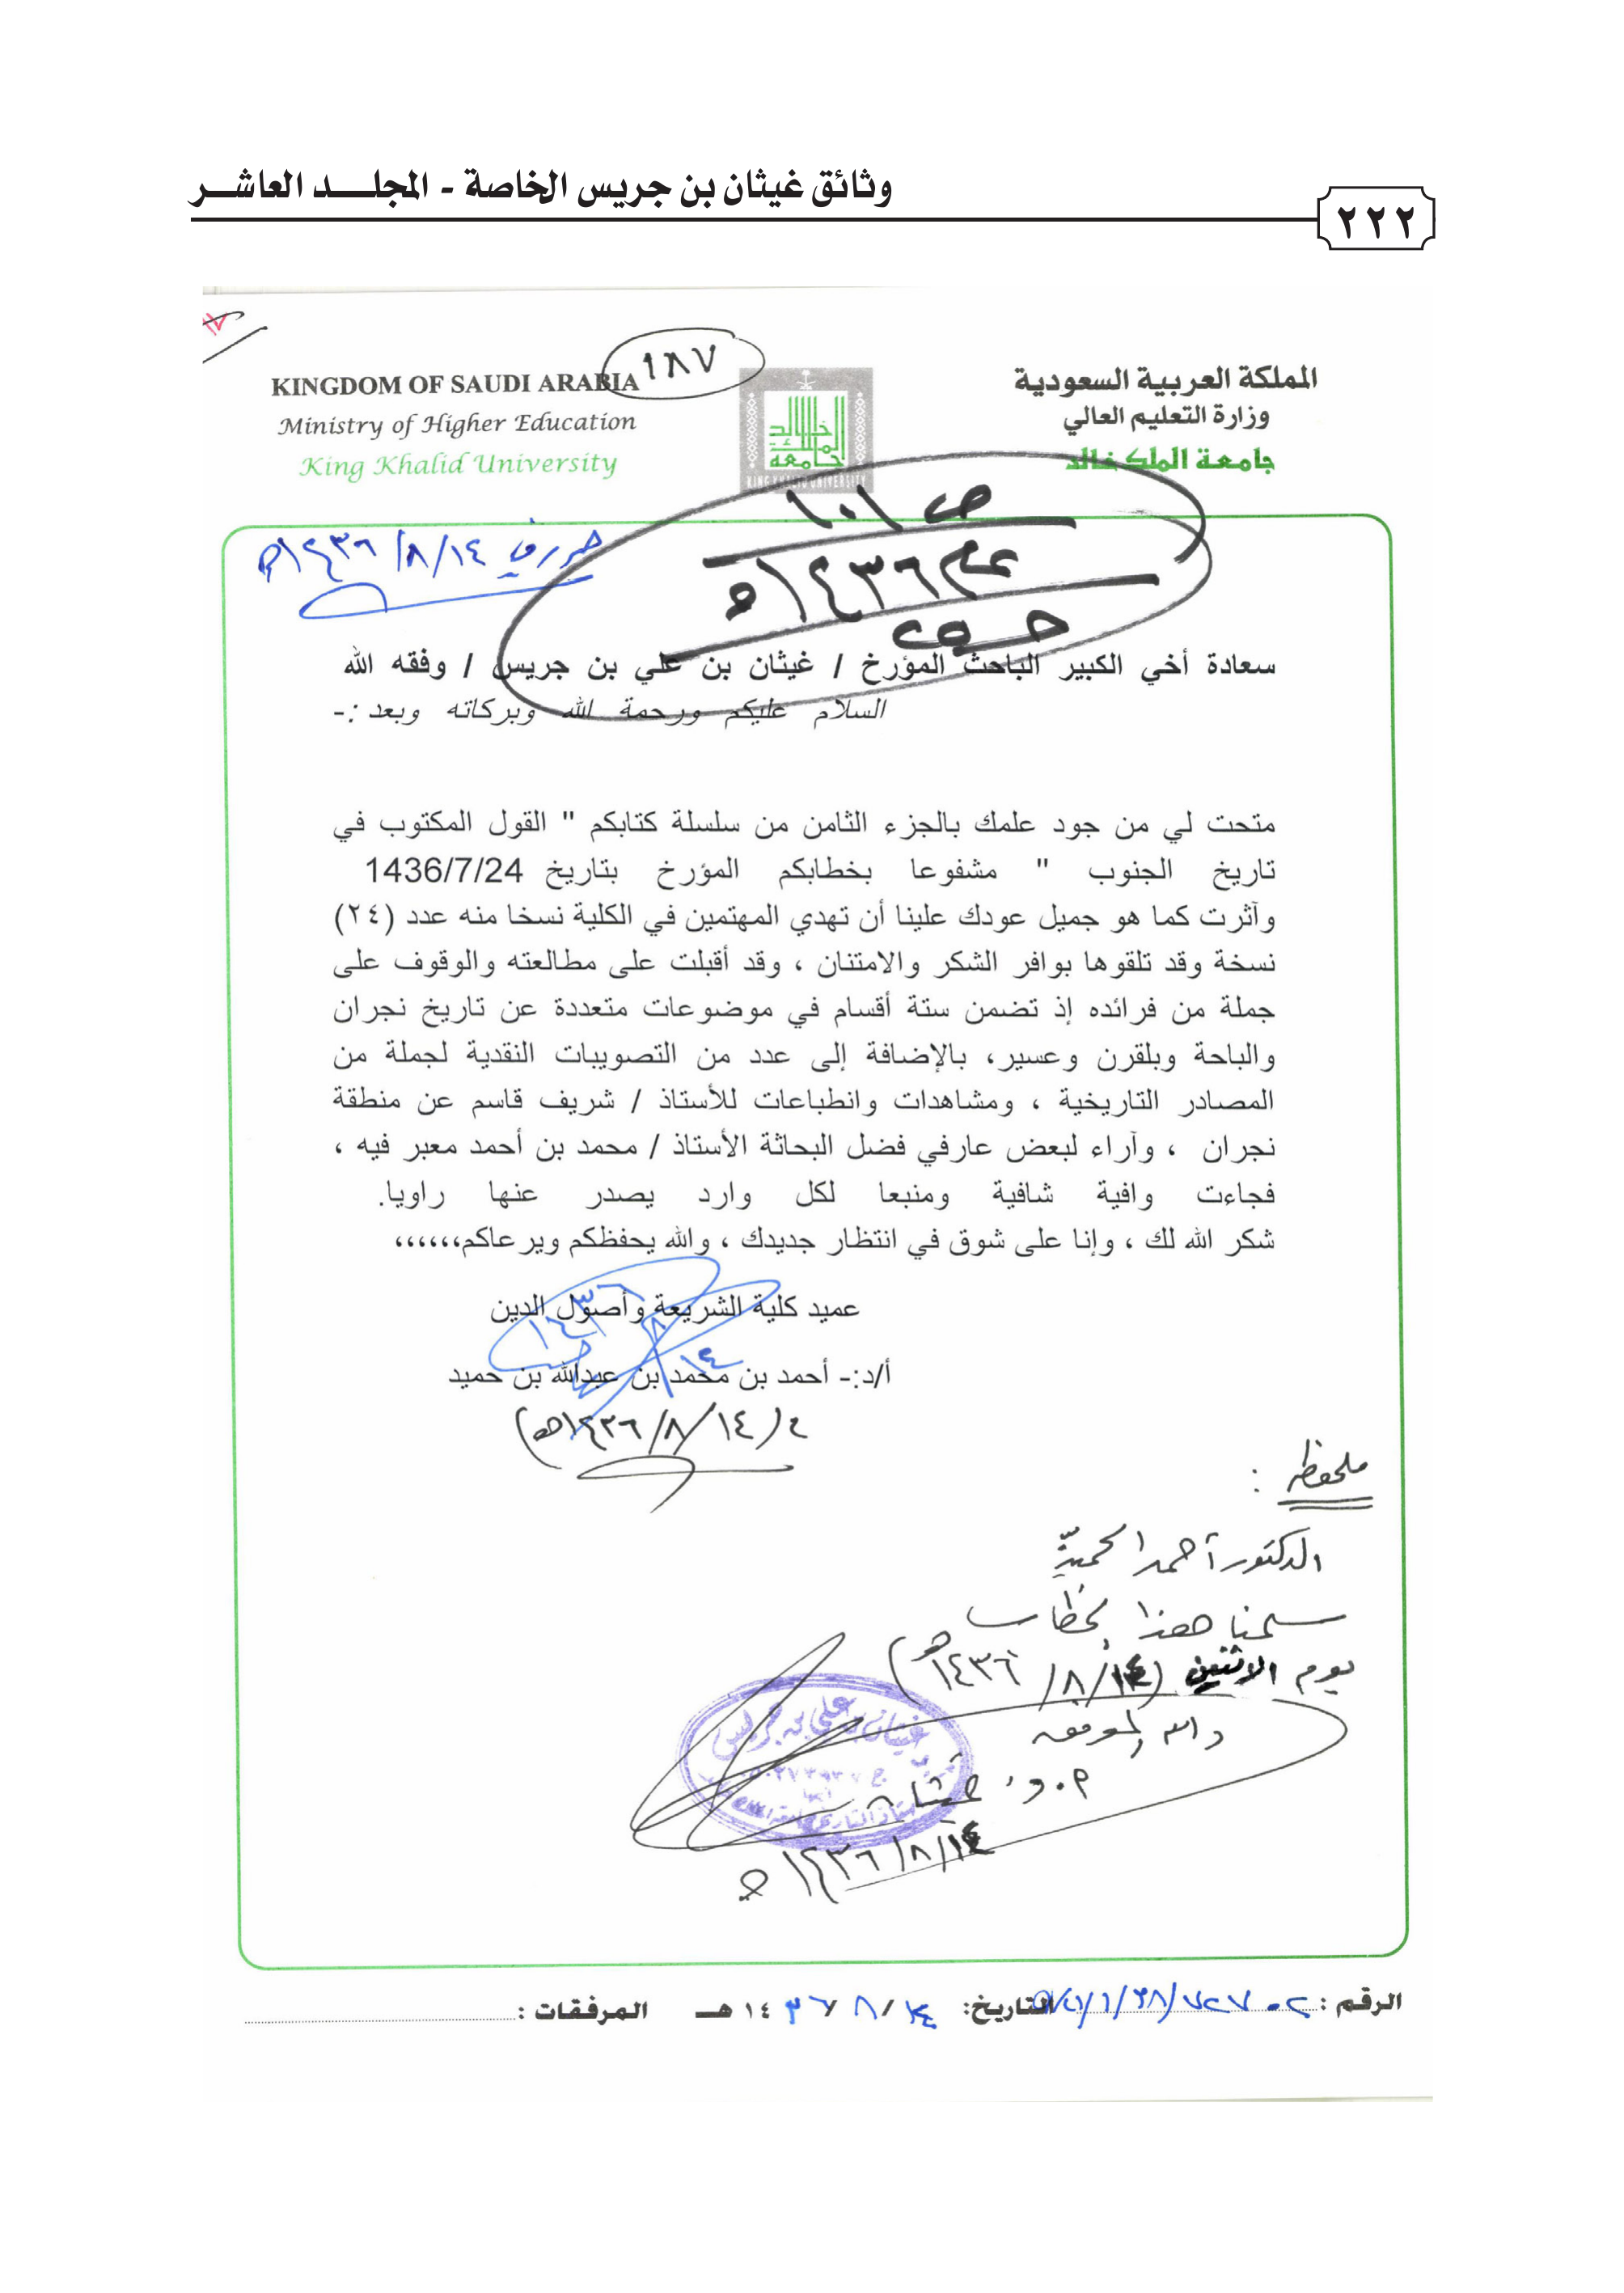 وثائق غيثان بن جريس الخاصة - المجلـــد العاشـــر
٢٢٢
١٨٧
KINGDOM OF SAUDI ARABIA
Ministry of Higher Education
King Khalid University
المملكة العربية السعودية
وزارة التعليم العالي
جامعة الملك خالد
جامعة الملك خالد
KING KHALID UNIVERSITY
ص ١٠١
عام ١٤٣٦هـ
١٤/٨/١٤٣٦هـ
سعادة أخي الكبير الباحث المؤرخ / غيثان بن علي بن جريس / وفقه الله
السلام عليكم ورحمة الله وبركاته وبعد :-
متحت لي من جود علمك بالجزء الثامن من سلسلة كتابكم " القول المكتوب في
تاريخ الجنوب " مشفوعا بخطابكم المؤرخ بتاريخ 1436/7/24
وآثرت كما هو جميل عودك علينا أن تهدي المهتمين في الكلية نسخا منه عدد (٢٤)
نسخة وقد تلقوها بوافر الشكر والامتنان ، وقد أقبلت على مطالعته والوقوف على
جملة من فرائده إذ تضمن ستة أقسام في موضوعات متعددة عن تاريخ نجران
والباحة وبلقرن وعسير، بالإضافة إلى عدد من التصويبات النقدية لجملة من
المصادر التاريخية ، ومشاهدات وانطباعات للأستاذ / شريف قاسم عن منطقة
نجران ، وآراء لبعض عارفي فضل البحاثة الأستاذ / محمد بن أحمد معبر فيه ،
فجاءت وافية شافية ومنبعا لكل وارد يصدر عنها راويا.
شكر الله لك ، وإنا على شوق في انتظار جديدك ، والله يحفظكم ويرعاكم،،،،،،
عميد كلية الشريعة وأصول الدين
١٤/٨/١٤٣٦
أ/د:- أحمد بن محمد بن عبدالله بن حميد
(١٤/٨/١٤٣٦هـ)
ملحوظة :
الدكتور أحمد الحميد
سلمنا هذا الخطاب
يوم الاثنين (١٤/٨/١٤٣٦هـ)
والله الموفق
أ.د. غيثان
غيثان بن علي بن جريس
١٤/٨/١٤٣٦هـ
الرقم :
التاريخ: ١٤/ ٨ / ١٤٣٦ هـ
المرفقات :